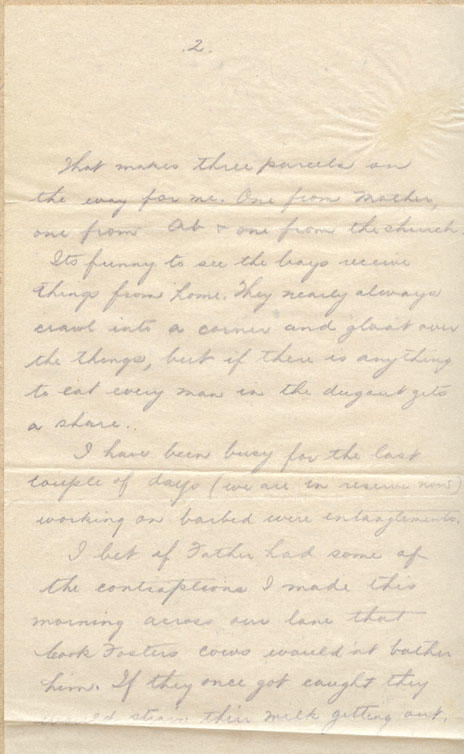 .2.
That makes three parcels on
the way for me. One from Mother,
one from Ab + one from the church.
Its funny to see the boys receive
things from home. They nearly always
crawl into a corner and gloat over
the things, but if there is anything
to eat every man in the dugout gets
a share..
I have been busy for the last
couple of days (we are in reserve now)
working on barbed wire entanglements.
I bet if Father had some of
the contraptions I made this
morning across our lane that
Cook Fosters cows would'nt bother
him. If they once got caught they
would strain their milk getting out.